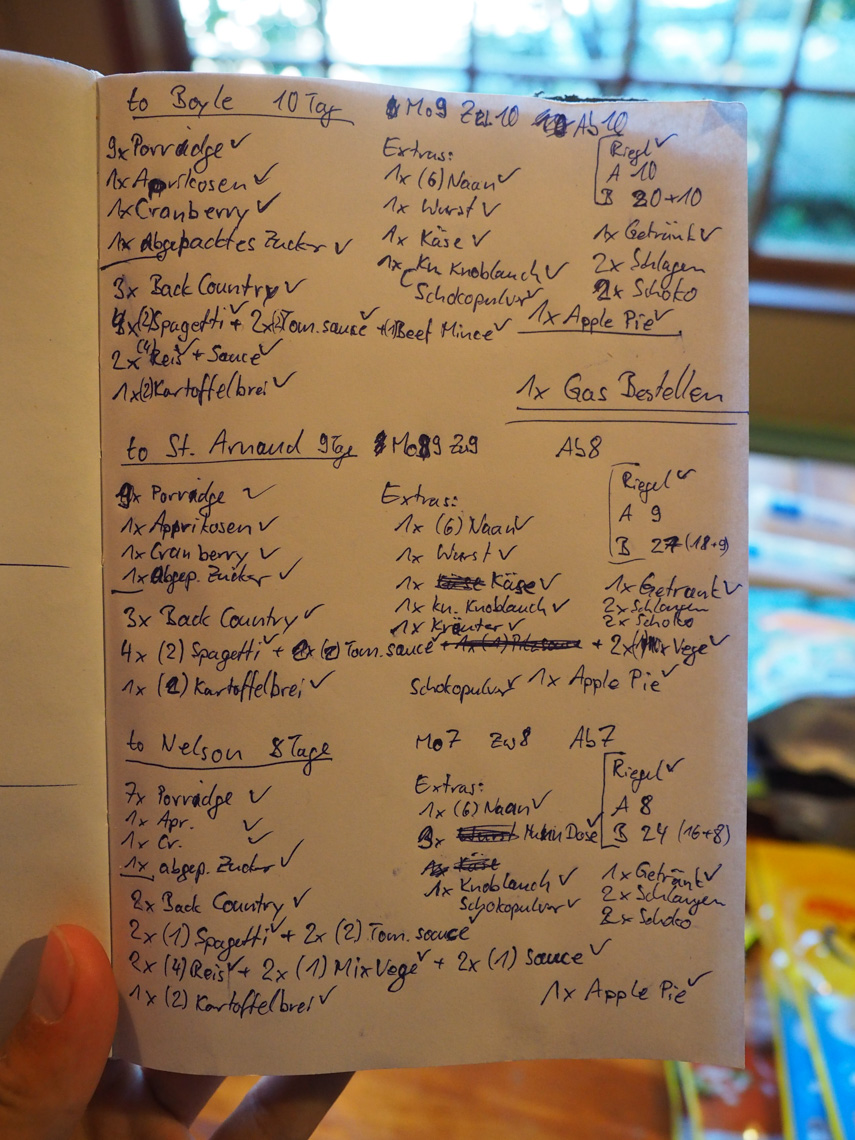 to Boyle 10 Tag Mo9 Zw10 Ab10
9x Porridge ✓
1x Aprikosen ✓
1x Cranberry ✓
1x Abgepacktes Zucker ✓
3x Back Country ✓
4x(2)Spagetti ✓ + 2x(2)Tom. sauce ✓ +(1)Beef Mince ✓
2x (4) Reis ✓ + Sauce ✓
1x(2)Kartoffelbrei ✓
Extras:
1x (6) Naan ✓
1x Wurst ✓
1x Käse ✓
1x Kn Knoblauch ✓
Schokopulver ✓
Riegel ✓
A 10
B 20+10
1x Getränk ✓
2x Schlagen
2x Schoko
1x Apple Pie ✓
1x Gas Bestellen
to St. Arnaud 9Tage Mo9 Zw9 Ab8
9x Porridge ✓
1x Apprikosen ✓
1x Cranberry ✓
1x Abgep. Zucker ✓
3x Back Country ✓
4x (2) Spagetti ✓ + 2x (2) Tom. sauce ✓ + 2x Mix Vege ✓
1x (2) Kartoffelbrei ✓
Extras:
1x (6) Naan ✓
1x Wurst ✓
1x Käse ✓
1x kn. Knoblauch ✓
1x Kräuter ✓
Schokopulver ✓ 1x Apple Pie ✓
Riegel ✓
A 9
B 27 (18+9)
1x Getränk ✓
2x Schlangen
2x Schoko
to Nelson 8 Tage Mo7 Zw8 Ab7
7x Porridge ✓
1x Apr. ✓
1x Cr. ✓
1x abgep. Zucker ✓
2x Back Country ✓
2x (1) Spagetti ✓ + 2x (2) Tom. sauce ✓
2x (4) Reis ✓ + 2x (1) Mix Vege ✓ + 2x (1) Sauce ✓
1x (2) Kartoffelbrei ✓
Extras:
1x (6) Naan ✓
Dose ✓
1x Knoblauch ✓
Schokopulver ✓
Riegel ✓
A 8
B 24 (16+8)
1x Getränk ✓
2x Schlangen
2x Schoko
1x Apple Pie ✓